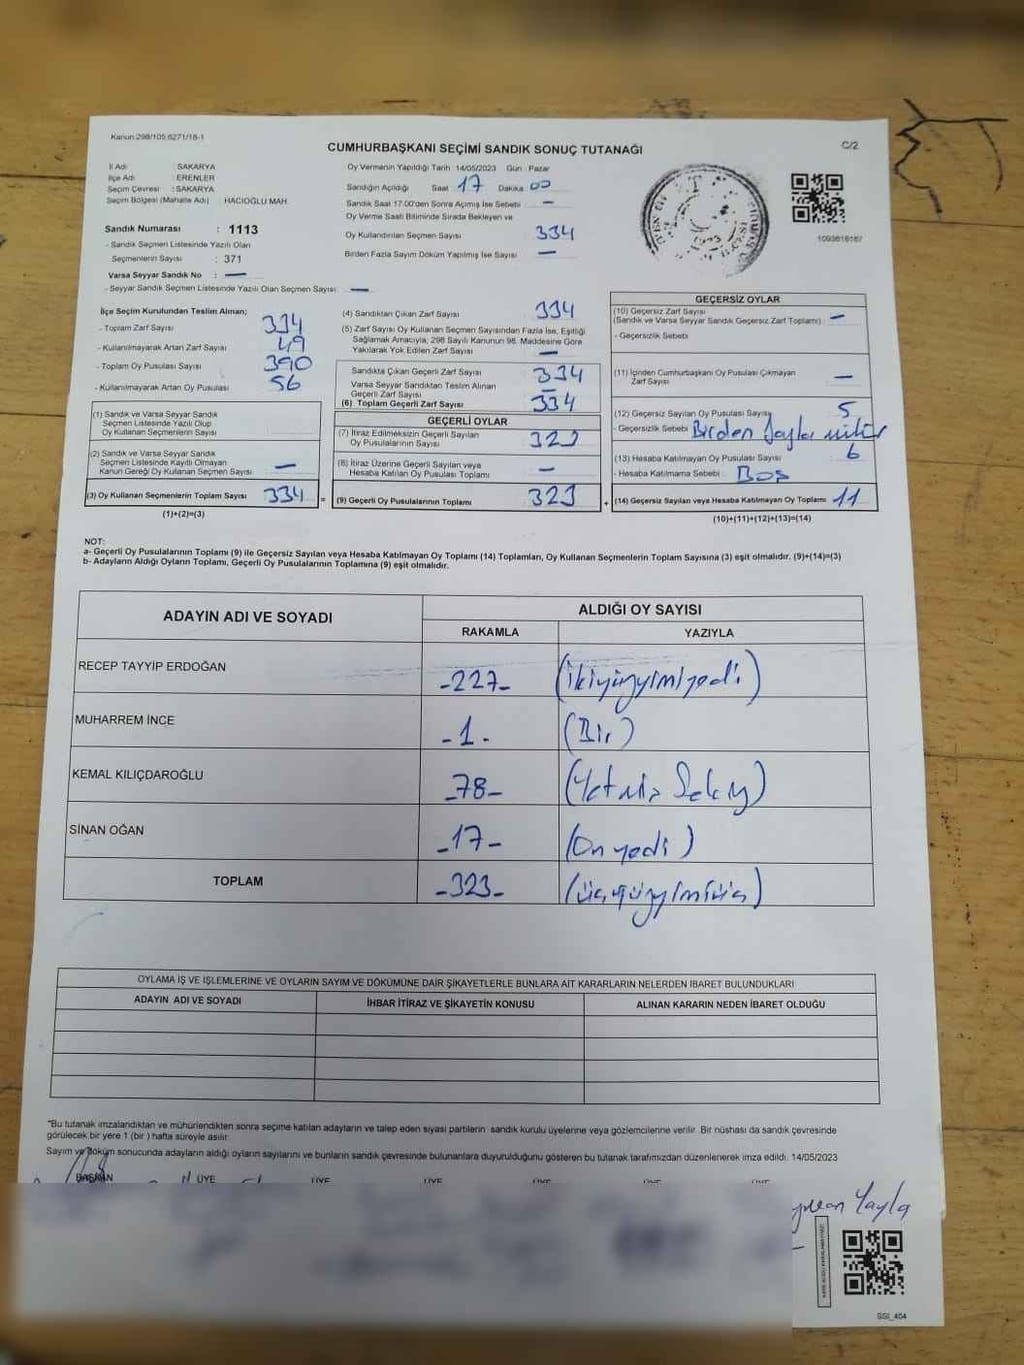 Kanun 298/105 6271/18-1
CUMHURBAŞKANI SEÇİMİ SANDIK SONUÇ TUTANAĞI
C/2
İl Adı SAKARYA
İlçe Adı : ERENLER
Seçim Çevresi : SAKARYA
Seçim Bölgesi (Mahalle Adı) HACIOĞLU MAH.
Sandık Numarası : 1113
- Sandık Seçmen Listesinde Yazılı Olan
Seçmenlerin Sayısı : 371
Varsa Seyyar Sandık No : —
- Seyyar Sandık Seçmen Listesinde Yazılı Olan Seçmen Sayısı —
Oy Vermenin Yapıldığı Tarih 14/05/2023 Gün : Pazar
Sandığın Açıldığı Saat 17 Dakika 00
Sandık Saat 17.00'den Sonra Açılmış İse Sebebi —
Oy Verme Saati Bitiminde Sırada Bekleyen ve
Oy Kullandırılan Seçmen Sayısı 334
Birden Fazla Sayım Döküm Yapılmış İse Sayısı —
1093616167
İlçe Seçim Kurulundan Teslim Alınan;
- Toplam Zarf Sayısı
- Kullanılmayarak Artan Zarf Sayısı 49
- Toplam Oy Pusulası Sayısı 390
- Kullanılmayarak Artan Oy Pusulası 56
(1) Sandık ve Varsa Seyyar Sandık
Seçmen Listesinde Yazılı Olup
Oy Kullanan Seçmenlerin Sayısı
(2) Sandık ve Varsa Seyyar Sandık
Seçmen Listesinde Kayıtlı Olmayan
Kanun Gereği Oy Kullanan Seçmen Sayısı —
(3) Oy Kullanan Seçmenlerin Toplam Sayısı 334 =
(1)+(2)=(3)
(4) Sandıktan Çıkan Zarf Sayısı 334
(5) Zarf Sayısı Oy Kullanan Seçmen Sayısından Fazla İse, Eşitliği
Sağlamak Amacıyla; 298 Sayılı Kanunun 98. Maddesine Göre
Yakılarak Yok Edilen Zarf Sayısı —
Sandıkta Çıkan Geçerli Zarf Sayısı 334
Varsa Seyyar Sandıktan Teslim Alınan
Geçerli Zarf Sayısı —
(6) Toplam Geçerli Zarf Sayısı 334
GEÇERLİ OYLAR
(7) İtiraz Edilmeksizin Geçerli Sayılan
Oy Pusulalarının Sayısı 323
(8) İtiraz Üzerine Geçerli Sayılan veya
Hesaba Katılan Oy Pusulaları Toplamı —
(9) Geçerli Oy Pusulalarının Toplamı 323 +
GEÇERSİZ OYLAR
(10) Geçersiz Zarf Sayısı
(Sandık ve Varsa Seyyar Sandık Geçersiz Zarf Toplamı) —
- Geçersizlik Sebebi
(11) İçinden Cumhurbaşkanı Oy Pusulası Çıkmayan
Zarf Sayısı —
(12) Geçersiz Sayılan Oy Pusulası Sayısı 5
- Geçersizlik Sebebi Birden fazla mühür
(13) Hesaba Katılmayan Oy Pusulası Sayısı 6
- Hesaba Katılmama Sebebi : Boş
(14) Geçersiz Sayılan veya Hesaba Katılmayan Oy Toplamı 11
(10)+(11)+(12)+(13)=(14)
NOT:
a- Geçerli Oy Pusulalarının Toplamı (9) ile Geçersiz Sayılan veya Hesaba Katılmayan Oy Toplamı (14) Toplamları, Oy Kullanan Seçmenlerin Toplam Sayısına (3) eşit olmalıdır. (9)+(14)=(3)
b- Adayların Aldığı Oyların Toplamı, Geçerli Oy Pusulalarının Toplamına (9) eşit olmalıdır.
ADAYIN ADI VE SOYADI ALDIĞI OY SAYISI
RAKAMLA YAZIYLA
RECEP TAYYİP ERDOĞAN -227- (ikiyüzyirmiyedi)
MUHARREM İNCE -1- (Bir)
KEMAL KILIÇDAROĞLU -78- (Yetmiş Sekiz)
SİNAN OĞAN -17- (On yedi)
TOPLAM -323- (üçyüzyirmiüç)
OYLAMA İŞ VE İŞLEMLERİNE VE OYLARIN SAYIM VE DÖKÜMÜNE DAİR ŞİKAYETLERLE BUNLARA AİT KARARLARIN NELERDEN İBARET BULUNDUKLARI
ADAYIN ADI VE SOYADI İHBAR İTİRAZ VE ŞİKAYETİN KONUSU ALINAN KARARIN NEDEN İBARET OLDUĞU
*Bu tutanak imzalandıktan ve mühürlendikten sonra seçime katılan adayların ve talep eden siyasi partilerin sandık kurulu üyelerine veya gözlemcilerine verilir. Bir nüshası da sandık çevresinde
görülecek bir yere 1 (bir ) hafta süreyle asılır.
Sayım ve döküm sonucunda adayların aldığı oyların sayılarını ve bunların sandık çevresinde bulunanlara duyurulduğunu gösteren bu tutanak tarafımızdan düzenlenerek imza edildi. 14/05/2023
BAŞKAN ÜYE ÜYE ÜYE ÜYE ÜYE ÜYE
Yayla
SSI_404